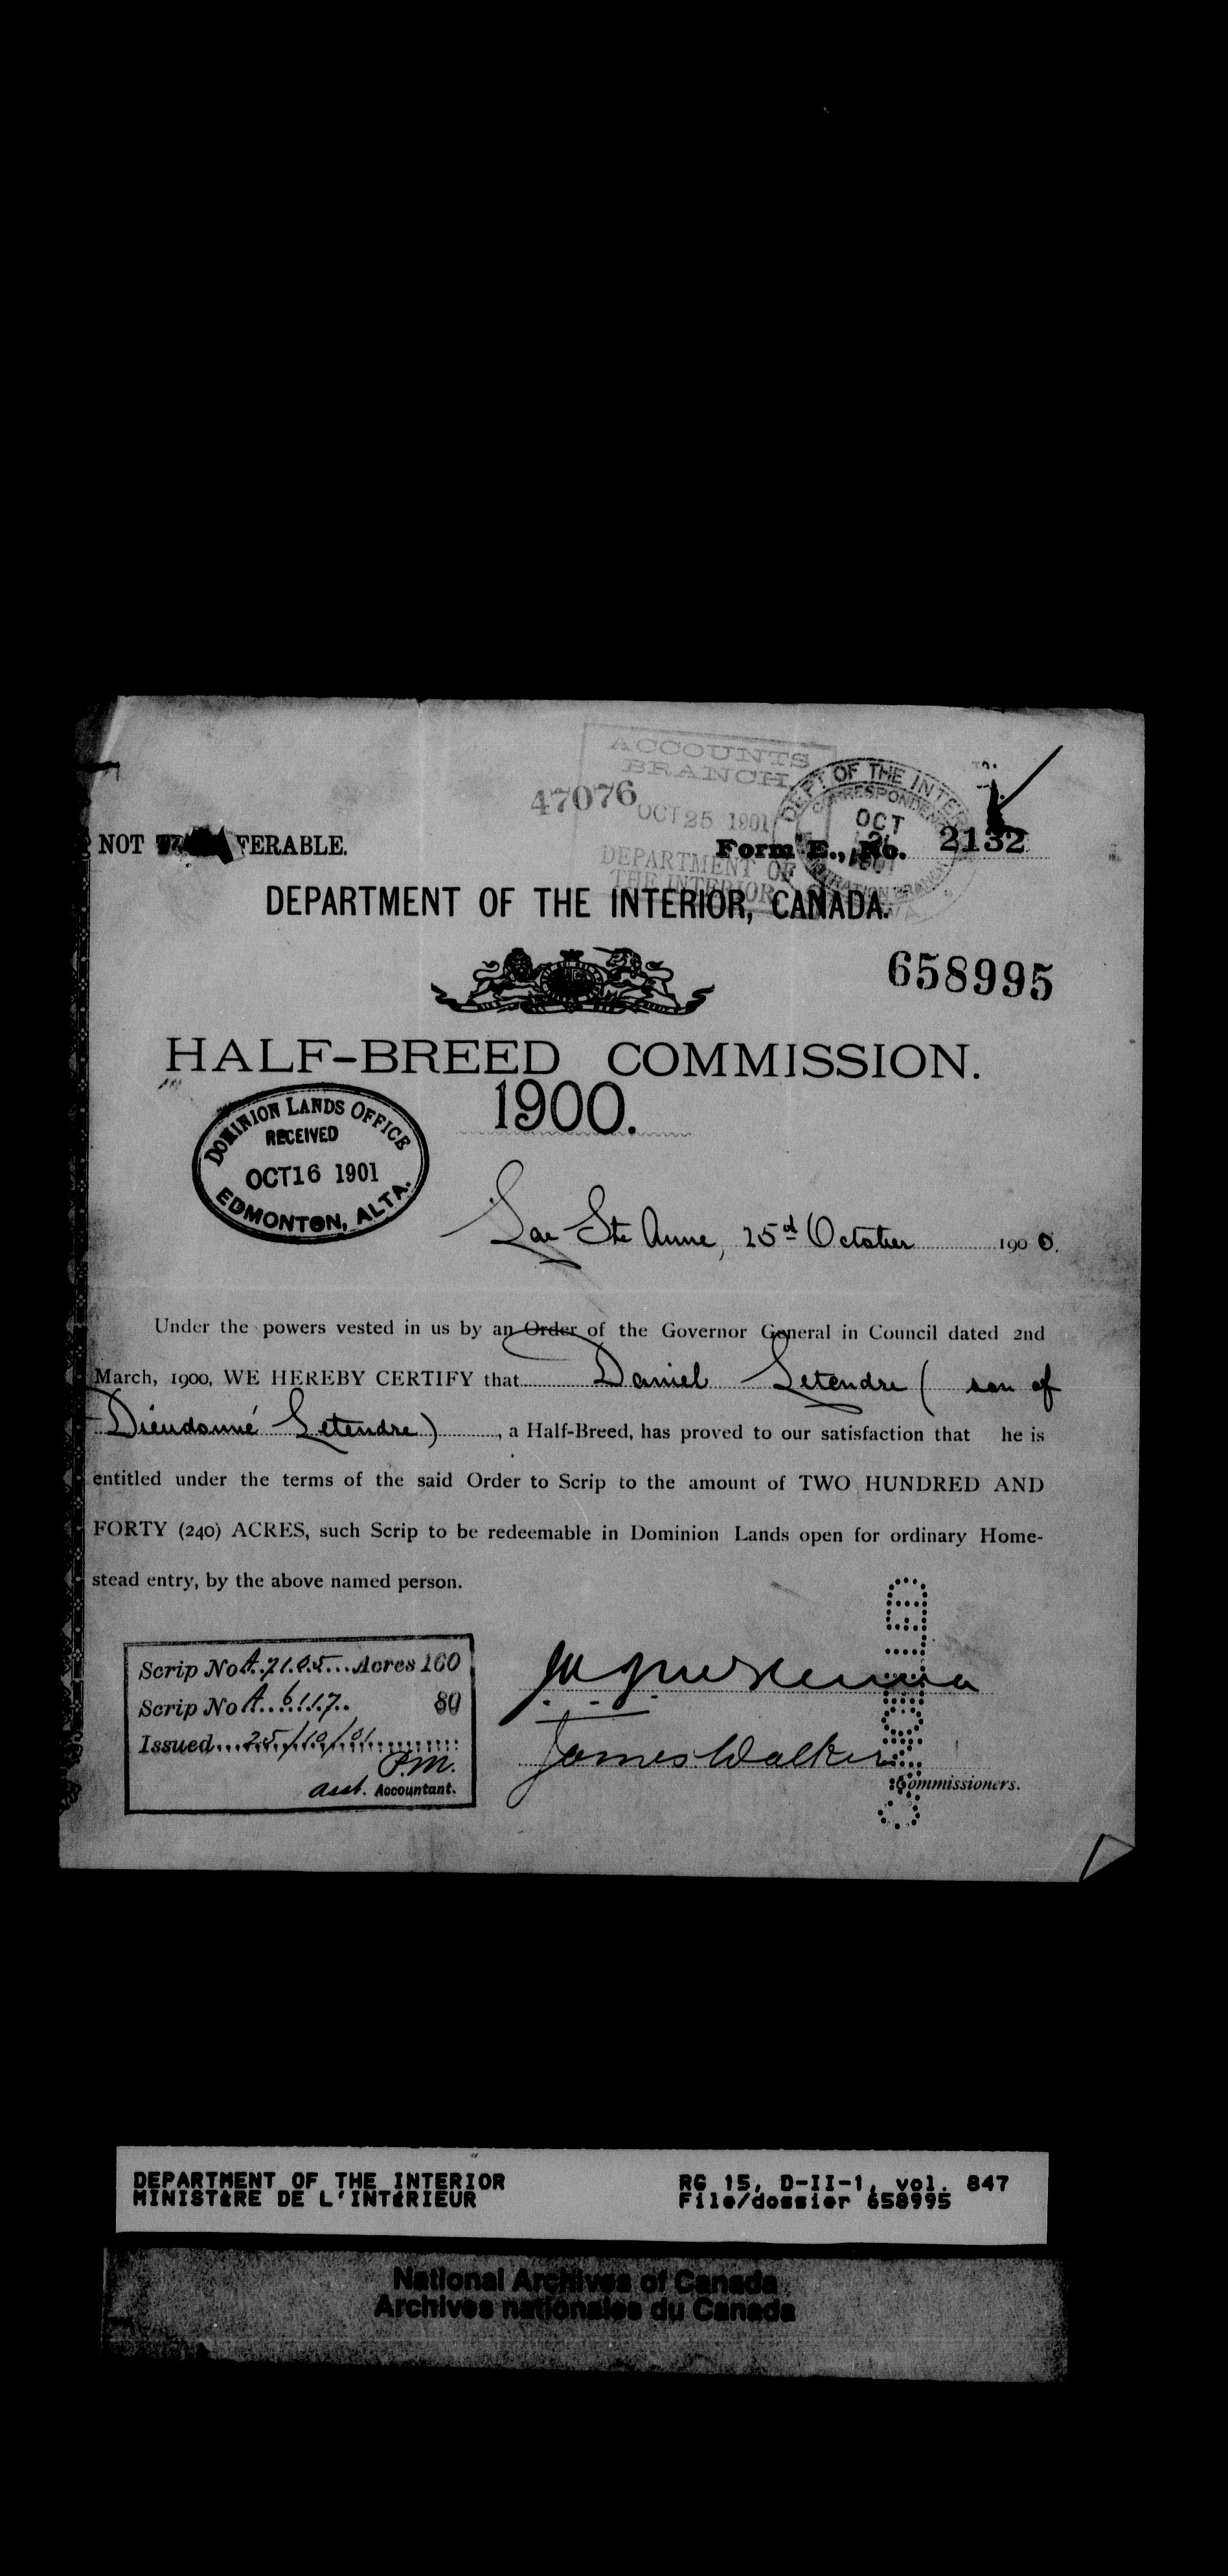 ACCOUNTS
BRANCH
47076
OCT 25 1901
DEPARTMENT OF
THE INTERIOR
DEPT OF THE INTER
CORRESPONDEN
OCT
1901
NOT FERABLE.
Form E., No. 2132
DEPARTMENT OF THE INTERIOR, CANADA.
658995
HALF-BREED COMMISSION.
1900.
DOMINION LANDS OFFICE
RECEIVED
OCT 16 1901
EDMONTON, ALTA.
Lac Ste Anne, 25d October 1900.
Under the powers vested in us by an Order of the Governor General in Council dated 2nd
March, 1900, WE HEREBY CERTIFY that Daniel Letendre ( son of
Dieudonné Letendre ) , a Half-Breed, has proved to our satisfaction that he is
entitled under the terms of the said Order to Scrip to the amount of TWO HUNDRED AND
FORTY (240) ACRES, such Scrip to be redeemable in Dominion Lands open for ordinary Home-
stead entry, by the above named person.
Scrip No A. 7105 Acres 160
Scrip No A. 6117 80
Issued 25/10/01
P.M.
Asst. Accountant.
James Walker
Commissioners.
DEPARTMENT OF THE INTERIOR
MINISTÈRE DE L'INTÉRIEUR
RG 15, D-II-1, vol. 847
File/dossier 658995
National Archives of Canada
Archives nationales du Canada